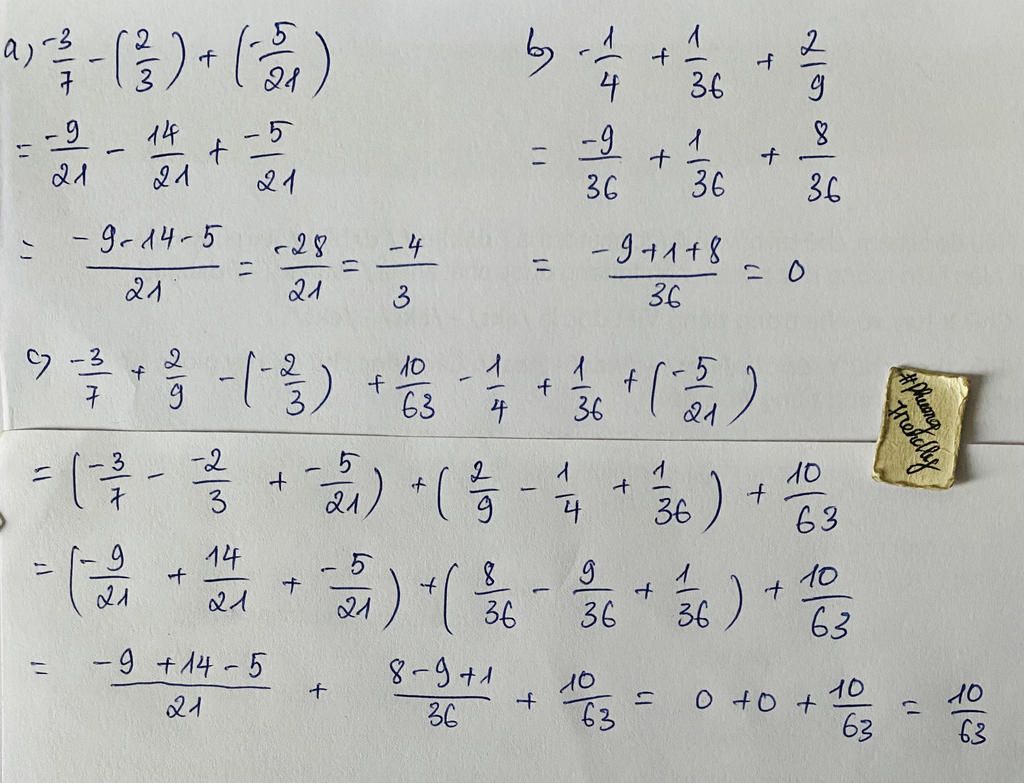 a) -3/7 - (2/3) + (-5/21)
= -9/21 - 14/21 + -5/21
= -9-14-5/21 = -28/21 = -4/3
b) -1/4 + 1/36 + 2/9
= -9/36 + 1/36 + 8/36
= -9+1+8/36 = 0
c) -3/7 + 2/9 - (-2/3) + 10/63 - 1/4 + 1/36 + (-5/21)
= (-3/7 - -2/3 + -5/21) + (2/9 - 1/4 + 1/36) + 10/63
= (-9/21 + 14/21 + -5/21) + (8/36 - 9/36 + 1/36) + 10/63
= -9+14-5/21 + 8-9+1/36 + 10/63 = 0 + 0 + 10/63 = 10/63